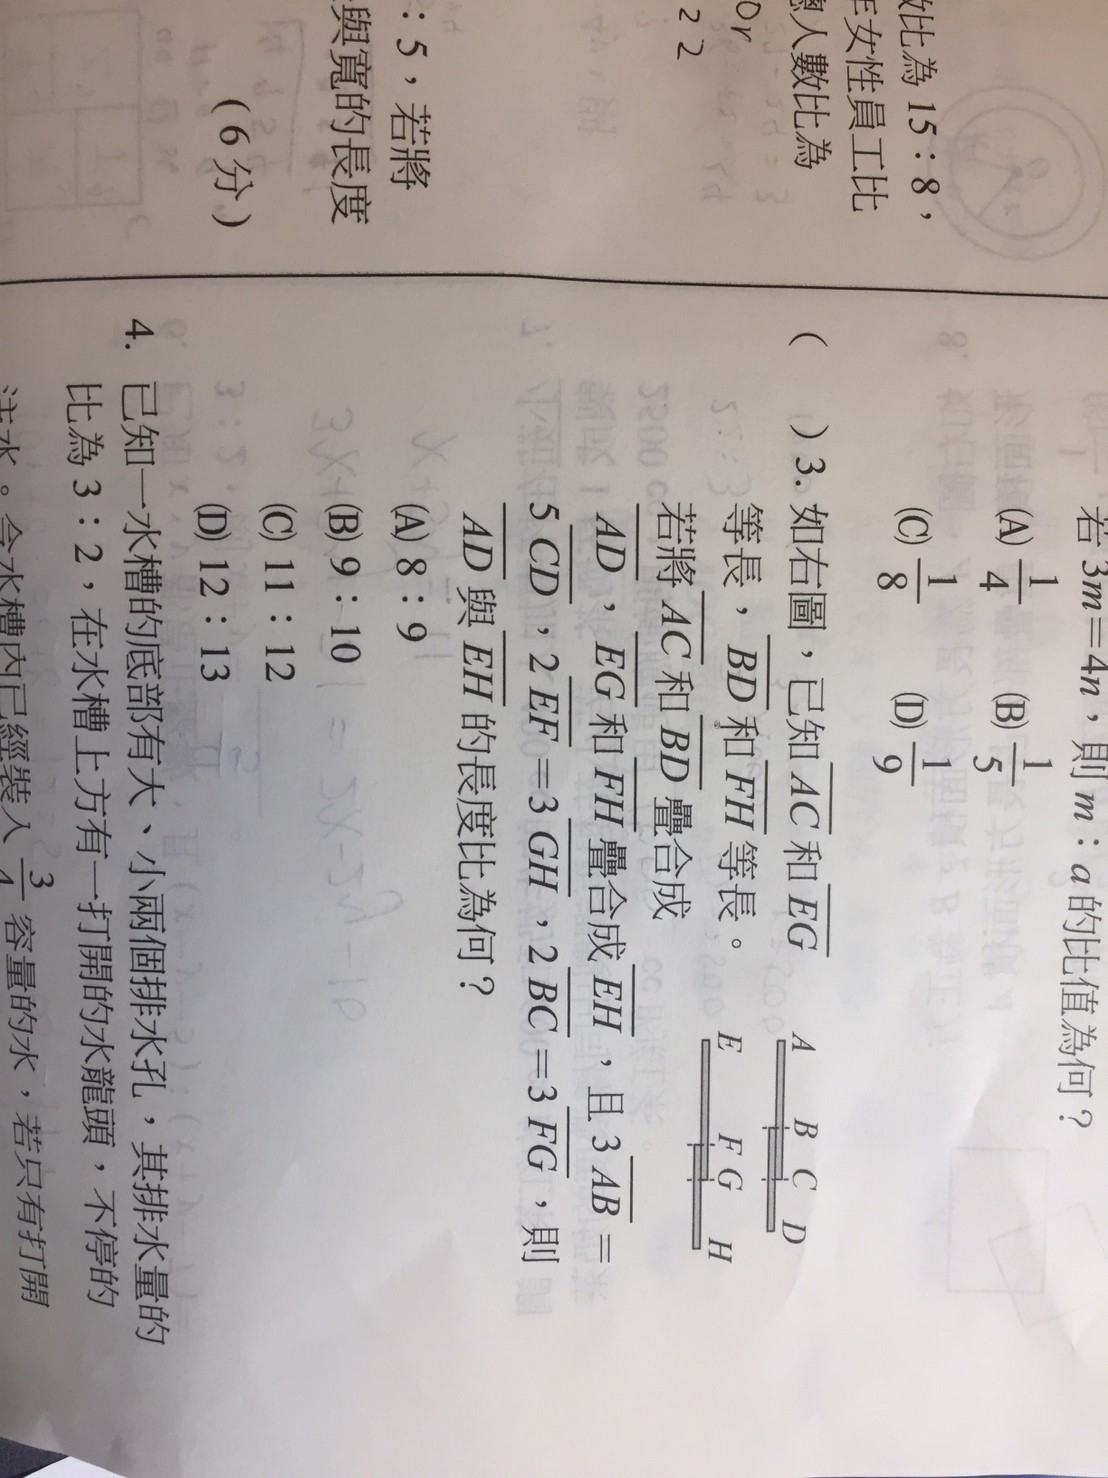 數比為 15:8,
年女性員工比
總人數比為
or
22
:5,若將
與寬的長度
(6分)
若 3m=4n,則 m:a 的比值為何?
(A) 1/4 (B) 1/5
(C) 1/8 (D) 1/9
( ) 3. 如右圖,已知 AC 和 EG
等長,BD 和 FH 等長。
若將 AC 和 BD 疊合成
AD,EG 和 FH 疊合成 EH,且 3 AB =
5 CD,2 EF=3 GH,2 BC=3 FG,則
AD 與 EH 的長度比為何?
A B C D
E F G H
(A) 8:9
(B) 9:10
(C) 11:12
(D) 12:13
4. 已知一水槽的底部有大、小兩個排水孔,其排水量的
比為 3:2,在水槽上方有一打開的水龍頭,不停的
注水。今水槽內已經裝入 3/4 容量的水,若只有打開